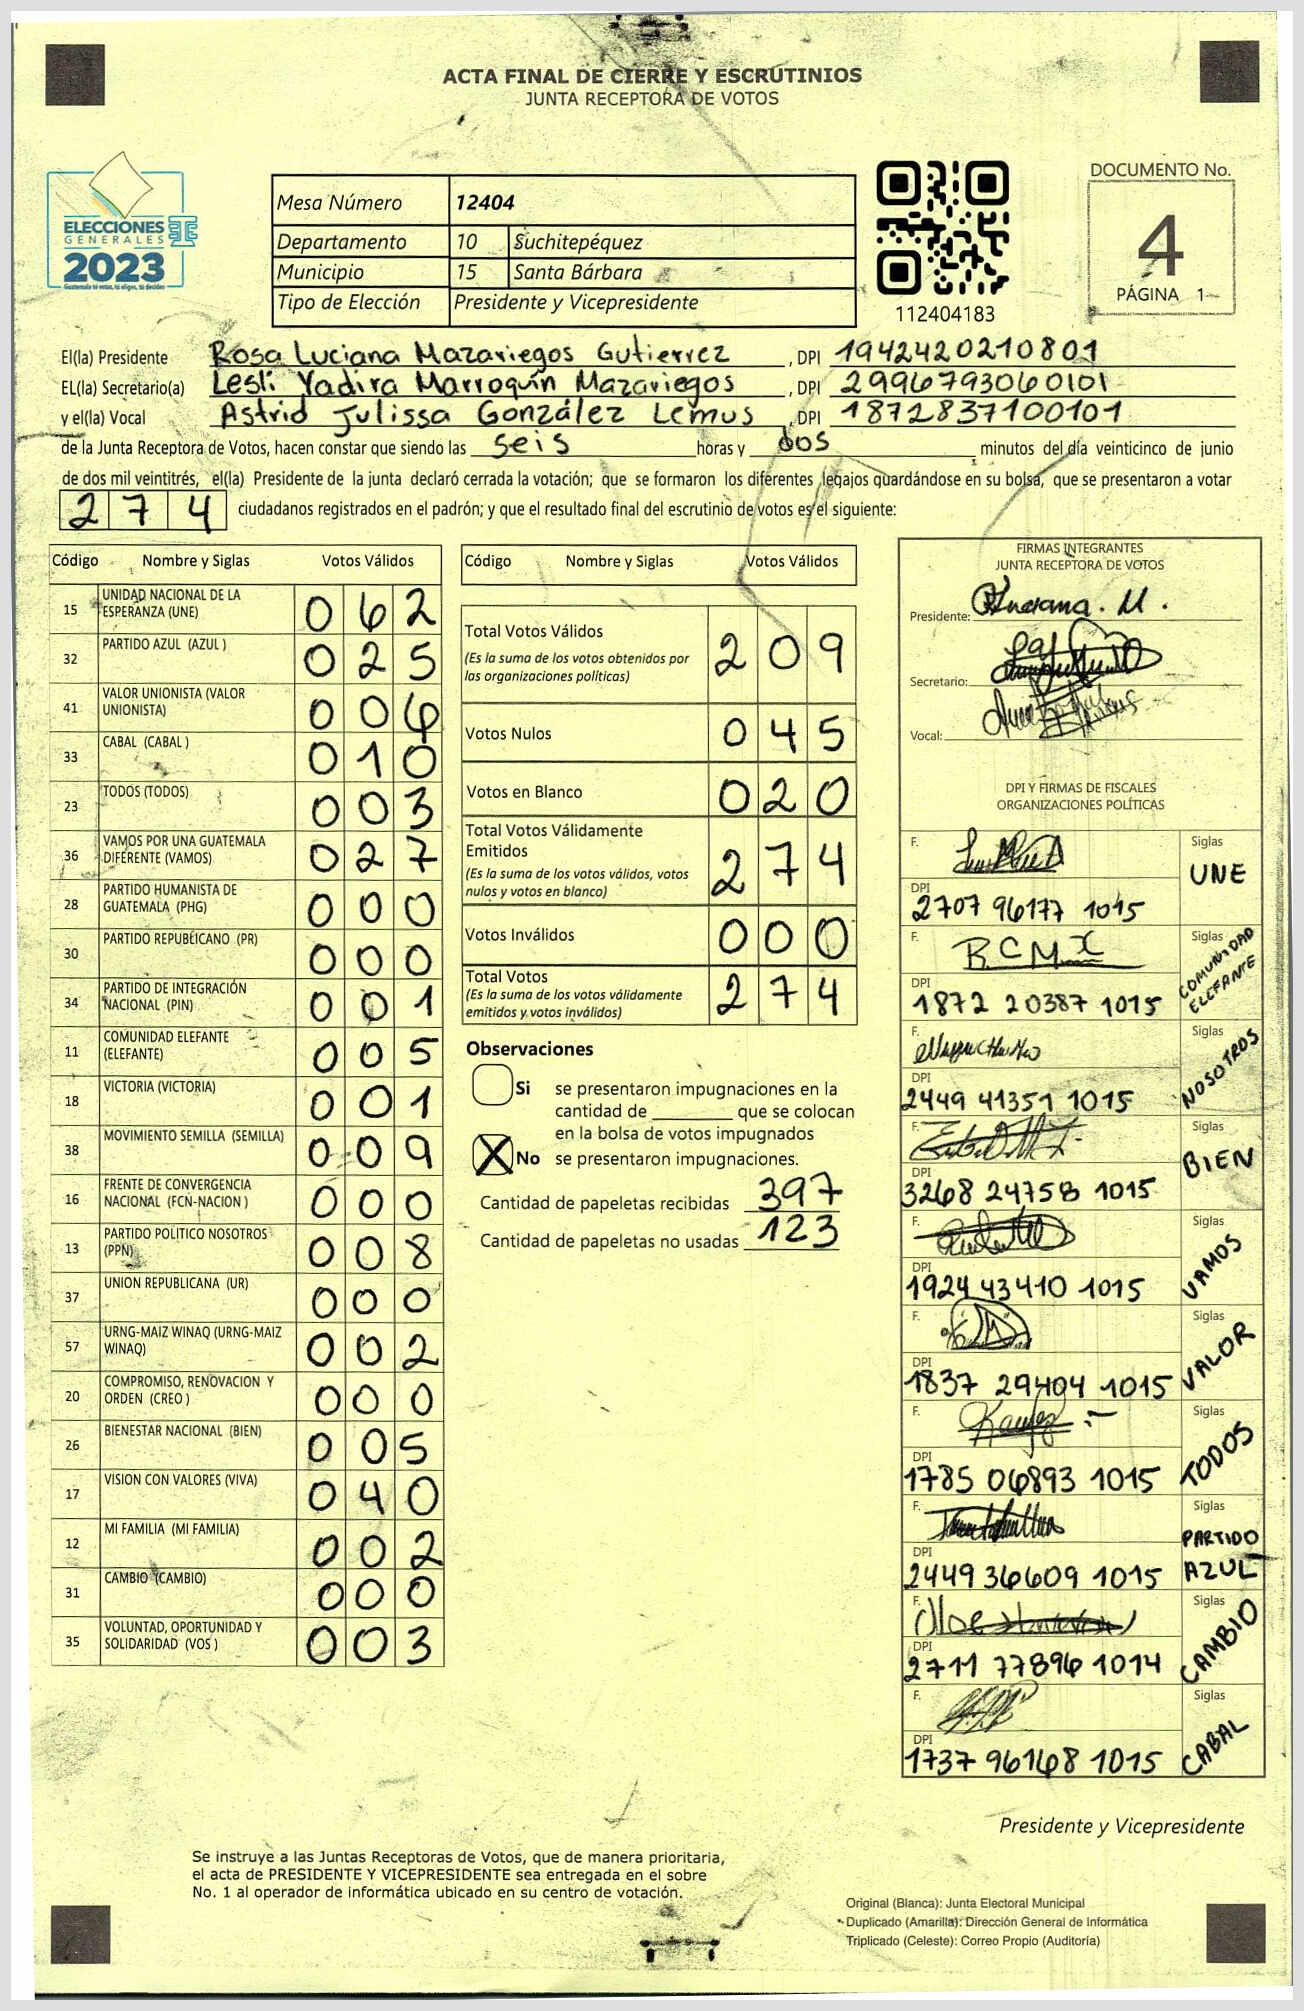 ACTA FINAL DE CIERRE Y ESCRUTINIOS
JUNTA RECEPTORA DE VOTOS
ELECCIONES
GENERALES
2023
Guatemala tú votas, tú eliges, tú decides
Mesa Número 12404
Departamento 10 Suchitepéquez
Municipio 15 Santa Bárbara
Tipo de Elección Presidente y Vicepresidente
112404183
DOCUMENTO No.
4
PÁGINA 1
El(la) Presidente Rosa Luciana Mazariegos Gutierrez , DPI 1942420210801
EL(la) Secretario(a) Lesli Yadira Marroquín Mazariegos , DPI 2996793060101
y el(la) Vocal Astrid Julissa González Lemus , DPI 1872837100101
de la Junta Receptora de Votos, hacen constar que siendo las seis horas y dos minutos del día veinticinco de junio
de dos mil veintitrés, el(la) Presidente de la junta declaró cerrada la votación; que se formaron los diferentes legajos guardándose en su bolsa, que se presentaron a votar
274 ciudadanos registrados en el padrón; y que el resultado final del escrutinio de votos es el siguiente:
Código Nombre y Siglas Votos Válidos
15 UNIDAD NACIONAL DE LA
ESPERANZA (UNE) 062
32 PARTIDO AZUL (AZUL ) 025
41 VALOR UNIONISTA (VALOR
UNIONISTA) 006
33 CABAL (CABAL ) 010
23 TODOS (TODOS) 003
36 VAMOS POR UNA GUATEMALA
DIFERENTE (VAMOS) 027
28 PARTIDO HUMANISTA DE
GUATEMALA (PHG) 000
30 PARTIDO REPUBLICANO (PR) 000
34 PARTIDO DE INTEGRACIÓN
NACIONAL (PIN) 001
11 COMUNIDAD ELEFANTE
(ELEFANTE) 005
18 VICTORIA (VICTORIA) 001
38 MOVIMIENTO SEMILLA (SEMILLA) 009
16 FRENTE DE CONVERGENCIA
NACIONAL (FCN-NACION ) 000
13 PARTIDO POLITICO NOSOTROS
(PPN) 008
37 UNION REPUBLICANA (UR) 000
57 URNG-MAIZ WINAQ (URNG-MAIZ
WINAQ) 002
20 COMPROMISO, RENOVACION Y
ORDEN (CREO ) 000
26 BIENESTAR NACIONAL (BIEN) 005
17 VISION CON VALORES (VIVA) 040
12 MI FAMILIA (MI FAMILIA) 002
31 CAMBIO (CAMBIO) 000
35 VOLUNTAD, OPORTUNIDAD Y
SOLIDARIDAD (VOS ) 003
Código Nombre y Siglas Votos Válidos
Total Votos Válidos 209
(Es la suma de los votos obtenidos por
las organizaciones políticas)
Votos Nulos 045
Votos en Blanco 020
Total Votos Válidamente
Emitidos 274
(Es la suma de los votos válidos, votos
nulos y votos en blanco)
Votos Inválidos 000
Total Votos 274
(Es la suma de los votos válidamente
emitidos y votos inválidos)
Observaciones
Si se presentaron impugnaciones en la
cantidad de ________ que se colocan
en la bolsa de votos impugnados
X No se presentaron impugnaciones.
Cantidad de papeletas recibidas 397
Cantidad de papeletas no usadas 123
FIRMAS INTEGRANTES
JUNTA RECEPTORA DE VOTOS
Presidente: Luciana. M.
Secretario:
Vocal:
DPI Y FIRMAS DE FISCALES
ORGANIZACIONES POLÍTICAS
F. Siglas
UNE
DPI
2707 96177 1015
F. B.C.M. Siglas
COMUNIDAD
ELEFANTE
DPI
1872 20387 1015
F. Siglas
NOSOTROS
DPI
2449 41351 1015
F. Siglas
BIEN
DPI
3268 24758 1015
F. Siglas
VAMOS
DPI
1924 43410 1015
F. Siglas
VALOR
DPI
1837 29404 1015
F. Siglas
TODOS
DPI
1785 06893 1015
F. Siglas
PARTIDO
AZUL
DPI
2449 36609 1015
F. Siglas
CAMBIO
DPI
2711 77896 1014
F. Siglas
CABAL
DPI
1737 96168 1015
Presidente y Vicepresidente
Se instruye a las Juntas Receptoras de Votos, que de manera prioritaria,
el acta de PRESIDENTE Y VICEPRESIDENTE sea entregada en el sobre
No. 1 al operador de informática ubicado en su centro de votación.
Original (Blanca): Junta Electoral Municipal
Duplicado (Amarilla): Dirección General de Informática
Triplicado (Celeste): Correo Propio (Auditoría)